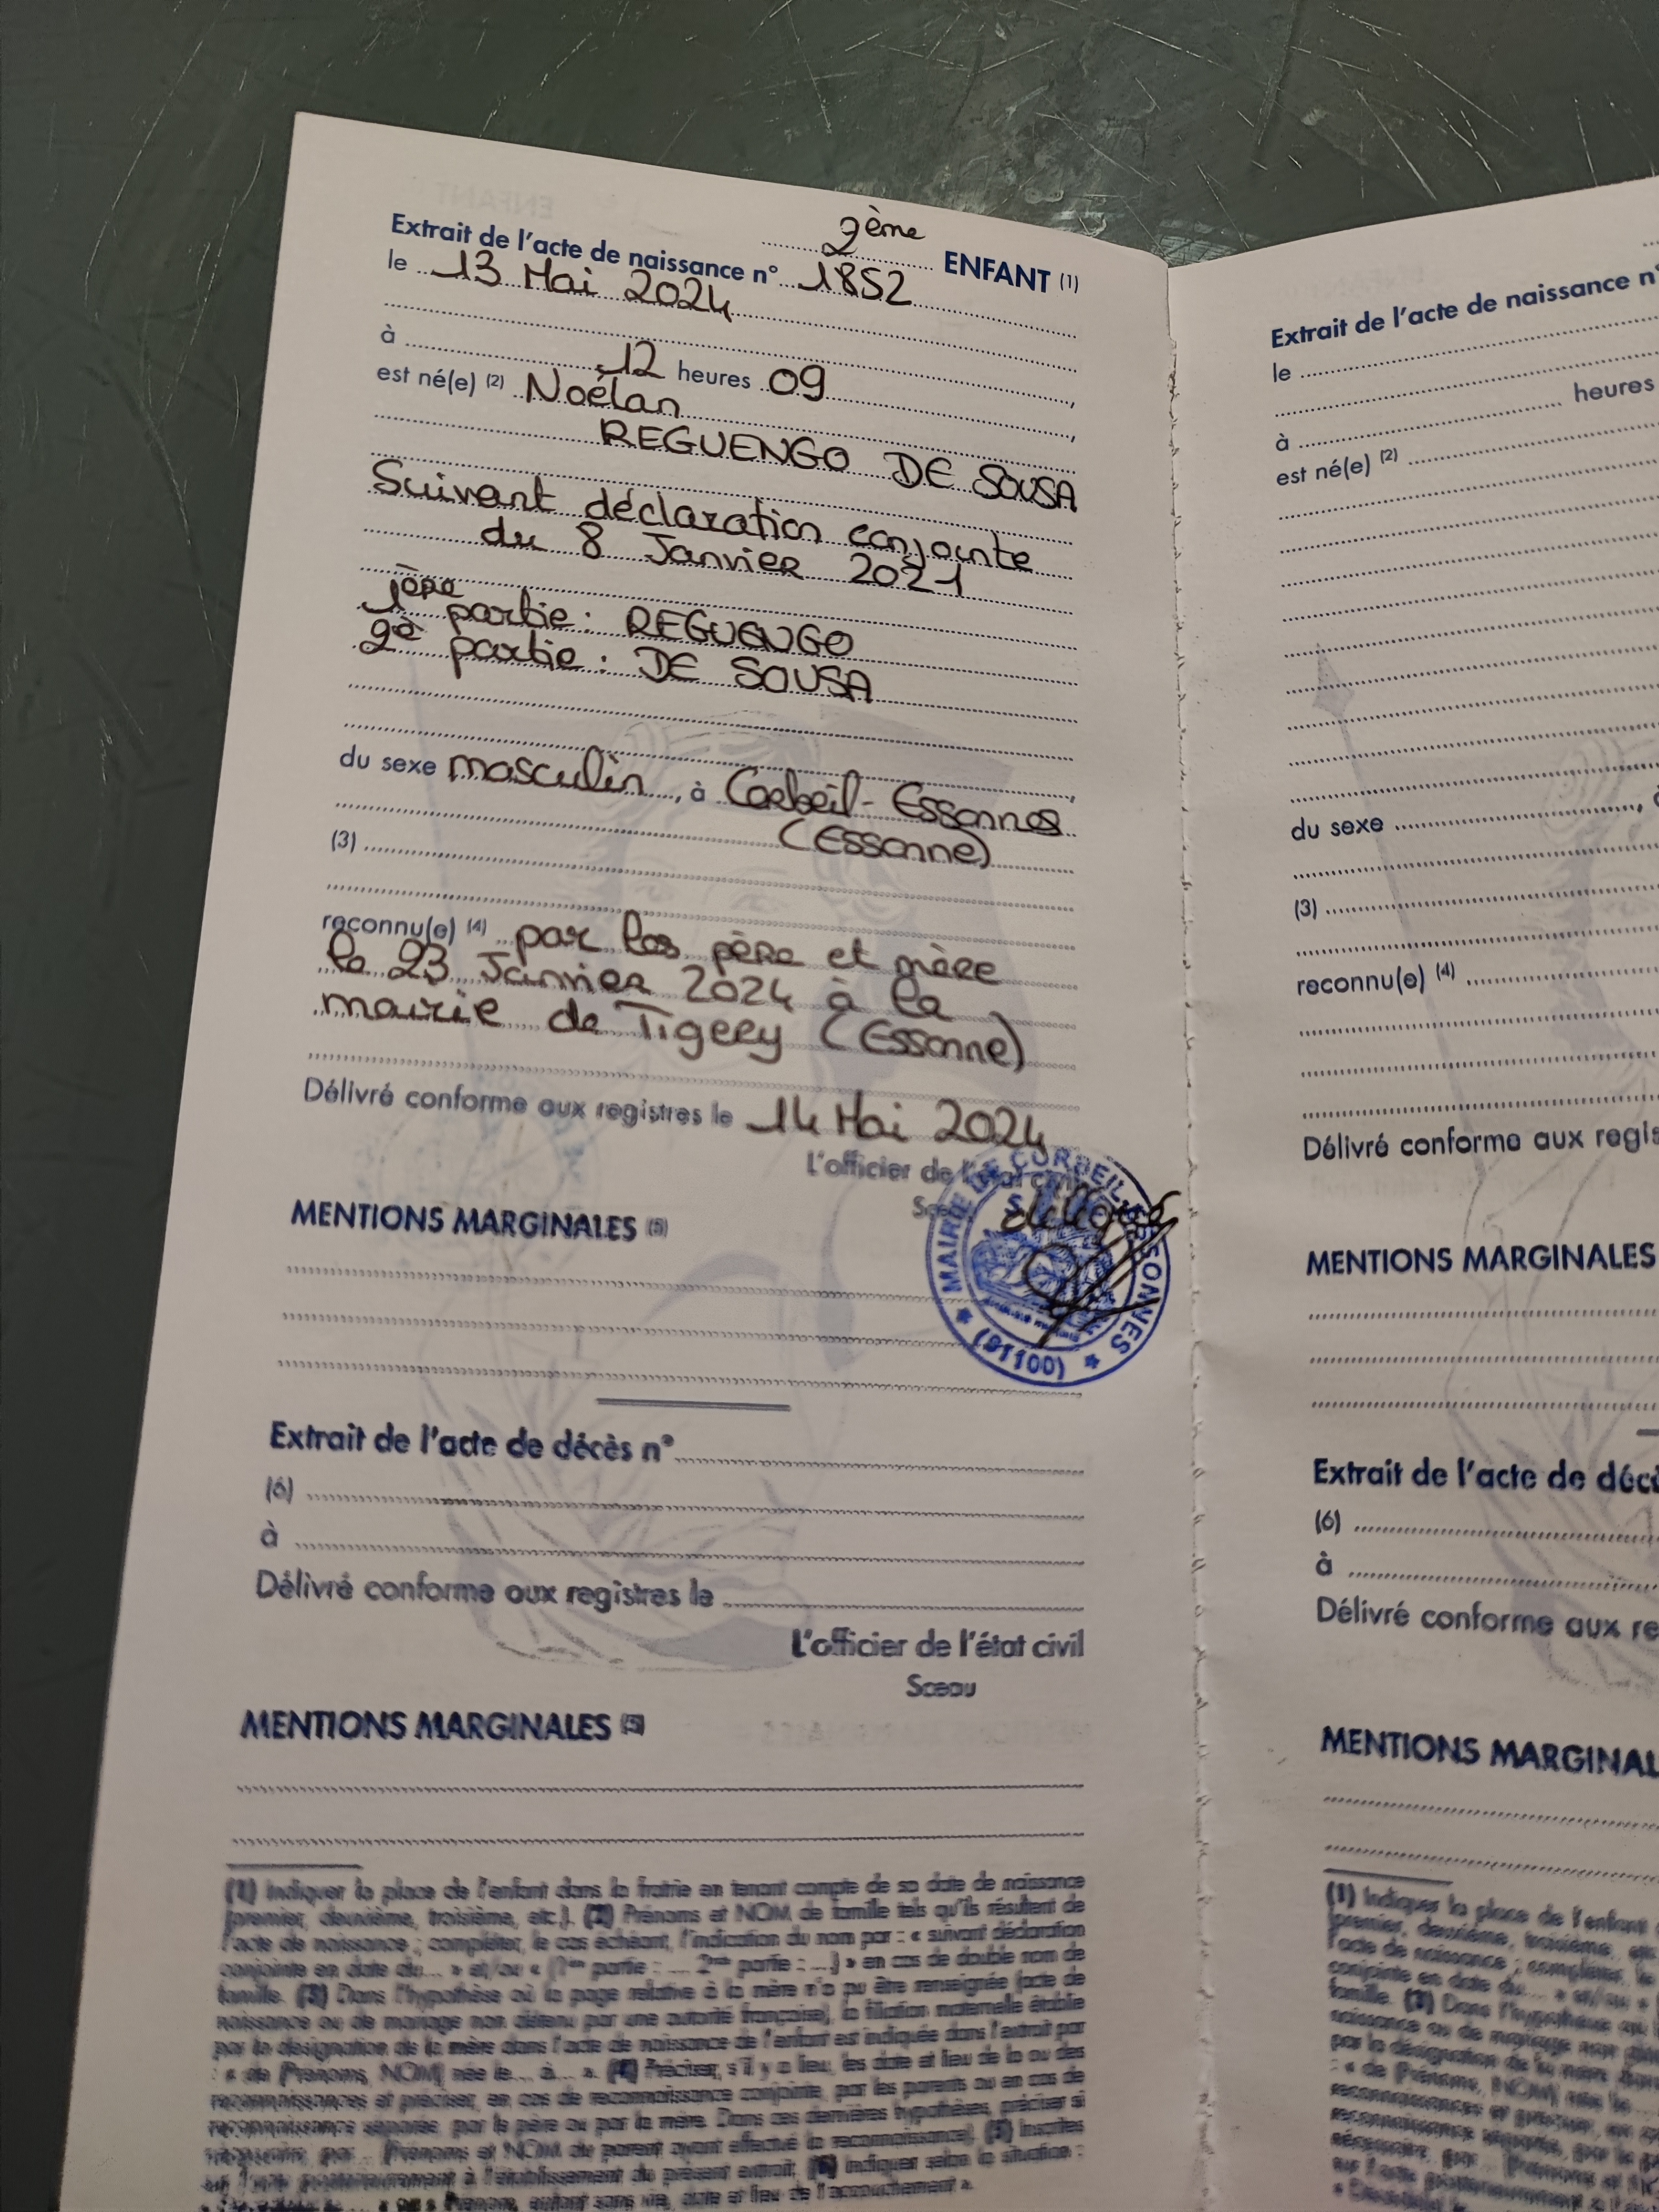 2ème ENFANT (1)
Extrait de l'acte de naissance n° 1852
le 13 Mai 2024
à 12 heures 09
est né(e) (2) Noélan
REGUENGO DE SOUSA
Suivant déclaration conjointe
du 8 Janvier 2021
1ère partie : REGUENGO
2è partie : DE SOUSA
du sexe masculin, à Corbeil-Essonnes
(Essonne)
(3)
reconnu(e) (4) par les père et mère
le 23 Janvier 2024 à la
mairie de Tigery (Essonne)
Délivré conforme aux registres le 14 Mai 2024
L'officier de l'état civil
Sceau
MAIRIE DE CORBEIL-ESSONNES
(91100)
MENTIONS MARGINALES (5)
Extrait de l'acte de décès n°
(6)
à
Délivré conforme aux registres le
L'officier de l'état civil
Sceau
MENTIONS MARGINALES (5)
(1) Indiquer la place de l'enfant dans la fratrie en tenant compte de sa date de naissance
(premier, deuxième, troisième, etc.). (2) Prénoms et NOM de famille tels qu'ils résultent de
l'acte de naissance ; compléter, le cas échéant, l'indication du nom par : « suivant déclaration
conjointe en date du... » et/ou « (1re partie : .... 2nde partie : ....) » en cas de double nom de
famille. (3) Dans l'hypothèse où la page relative à la mère n'a pu être renseignée (acte de
naissance ou de mariage non détenu par une autorité française), la filiation maternelle établie
par la désignation de la mère dans l'acte de naissance de l'enfant est indiquée dans l'extrait par
: « de (Prénoms, NOM) née le.... à.... ». (4) Préciser, s'il y a lieu, les date et lieu de la ou des
reconnaissances et préciser, en cas de reconnaissance conjointe, par les parents ou en cas de
reconnaissance séparée, par le père ou par la mère. Dans ces dernières hypothèses, préciser si
nécessaire, par... (Prénoms et NOM du parent ayant effectué la reconnaissance). (5) Inscrites
sur l'acte postérieurement à l'établissement du présent extrait. (6) Indiquer selon la situation :
Prénom, enfant sans vie, date et lieu de l'accouchement ».
Extrait de l'acte de naissance n°
le
à heures
est né(e) (2)
du sexe
(3)
reconnu(e) (4)
Délivré conforme aux
MENTIONS MARGINALES
Extrait de l'acte de
(6)
à
Délivré conforme aux
MENTIONS
(1) Indiquer la place de l'enfant